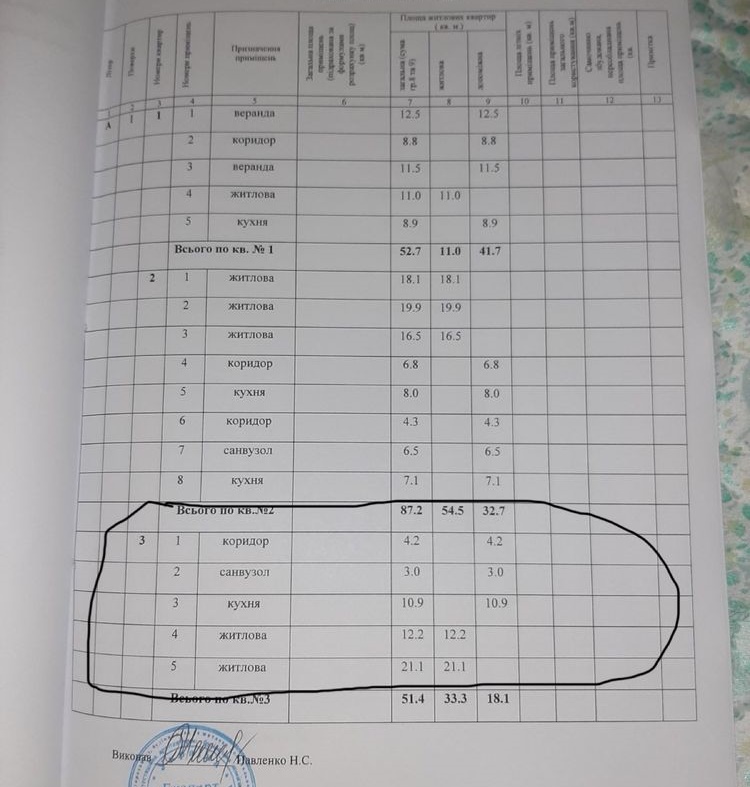 Літер
Поверхи
Номери квартир
Номери приміщень
Призначення приміщень
Загальна площа приміщень (підрахована за формулами розрахунку площ) (кв м)
Площа житлових квартир ( кв. м.)
загальна (сума гр.8 та 9)
житлова
допоміжна
Площа літніх приміщень (кв. м)
Площа приміщень загального користування (кв.м)
Самочинно збудована, переобладнана площа приміщень (кв.
Примітка
1 2 3 4 5 6 7 8 9 10 11 12 13
А 1 1 1 веранда 12.5 12.5
2 коридор 8.8 8.8
3 веранда 11.5 11.5
4 житлова 11.0 11.0
5 кухня 8.9 8.9
Всього по кв. № 1 52.7 11.0 41.7
2 1 житлова 18.1 18.1
2 житлова 19.9 19.9
3 житлова 16.5 16.5
4 коридор 6.8 6.8
5 кухня 8.0 8.0
6 коридор 4.3 4.3
7 санвузол 6.5 6.5
8 кухня 7.1 7.1
Всього по кв.№2 87.2 54.5 32.7
3 1 коридор 4.2 4.2
2 санвузол 3.0 3.0
3 кухня 10.9 10.9
4 житлова 12.2 12.2
5 житлова 21.1 21.1
Всього по кв.№3 51.4 33.3 18.1
Виконав Павленко Н.С.
Експерт